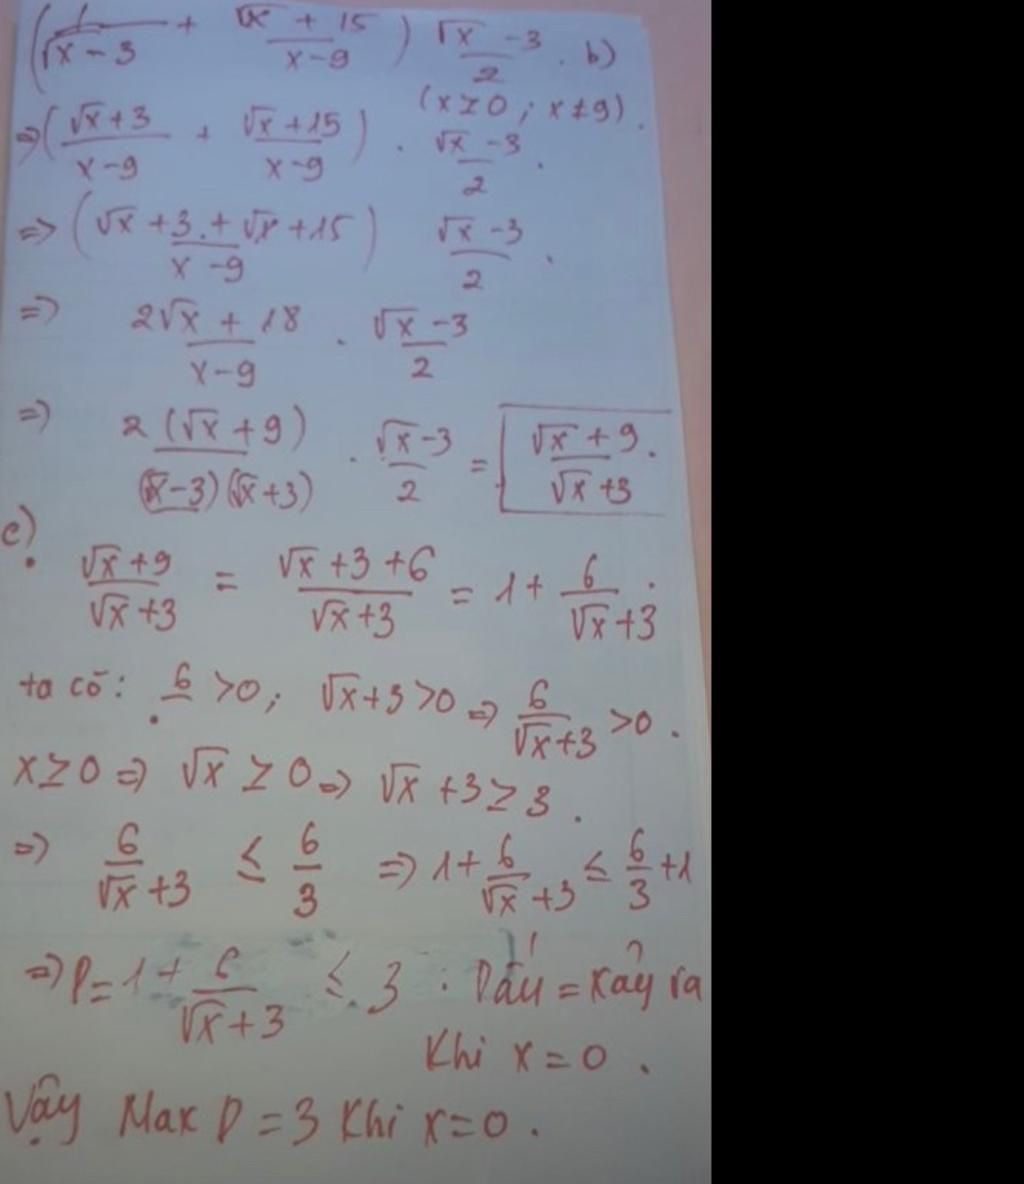 (1/(√x - 3) + (√x + 15)/(x - 9)) (√x - 3)/2 . b)
(x ≥ 0 ; x ≠ 9) .
=> ((√x + 3)/(x - 9) + (√x + 15)/(x - 9)) . (√x - 3)/2 .
=> ((√x + 3 . + √x + 15)/(x - 9)) (√x - 3)/2 .
=> (2√x + 18)/(x - 9) . (√x - 3)/2
=> 2(√x + 9)/((√x - 3)(√x + 3)) . (√x - 3)/2 = (√x + 9)/(√x + 3) .
c)
(√x + 9)/(√x + 3) = (√x + 3 + 6)/(√x + 3) = 1 + 6/(√x + 3) .
ta có : 6 > 0 ; √x + 3 > 0 => 6/(√x + 3) > 0 .
x ≥ 0 => √x ≥ 0 => √x + 3 ≥ 3 .
=> 6/(√x + 3) ≤ 6/3 => 1 + 6/(√x + 3) ≤ 6/3 + 1
=> P = 1 + 6/(√x + 3) ≤ 3 . Dấu = xảy ra
Khi x = 0 .
Vậy Max P = 3 Khi x = 0 .